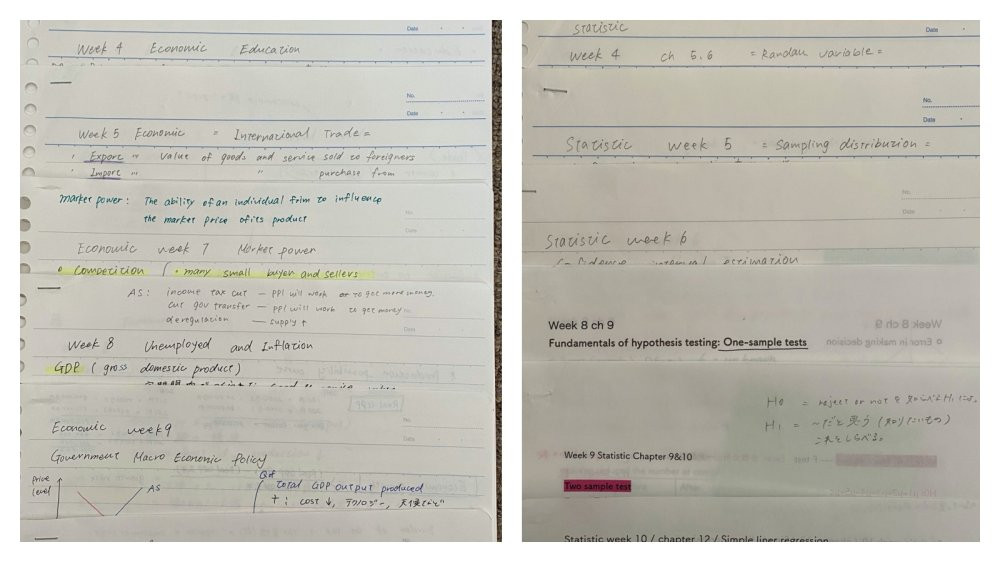 Date
Week 4 Economic Education
No.
Date
Week 5 Economic = International Trade =
Export " value of goods and service sold to foreigners
Import " " purchase from
market power : The ability of an individual frim to influence
the market price of its product
No.
Date
Economic week 7 Market power
Competition ( • many small buyer and sellers
AS : income tax cut — ppl will work to get more money.
cut gov transfer — ppl will work to get money
deregulation — supply ↑
No.
Date
Week 8 Unemployed and Inflation
GDP ( gross domestic product )
No.
Date
Economic week 9
Government Macro Economic Policy
price
level
AS
total GDP output produced
+ : cost ↓, テクノロジー,
Statistic
Date
Week 4 ch 5.6 = Randau variable =
No.
Date
Statistic week 5 = Sampling distribution =
No.
Date
Statistic week 6
interval estimation
Week 8 ch 9
Fundamentals of hypothesis testing: One-sample tests
H0 = reject or not を
H1 = 〜だと思う (知りたいもの)
これをしらべる。
Week 9 Statistic Chapter 9&10
Two sample test
Statistic week 10 / chapter 12 / Simple liner regression